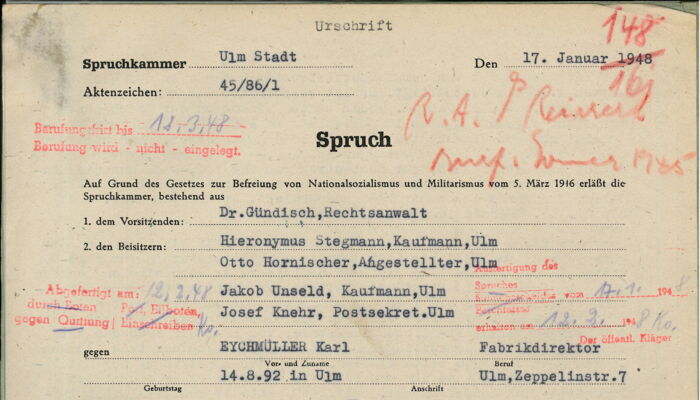 Urschrift
148
Spruchkammer Ulm Stadt Den 17. Januar 1948
Aktenzeichen: 45/86/1
Berufungsfrist bis 12.3.48
Berufung wird - nicht - eingelegt.
R.A.
Spruch
Auf Grund des Gesetzes zur Befreiung von Nationalsozialismus und Militarismus vom 5. März 1946 erläßt die
Spruchkammer, bestehend aus
1. dem Vorsitzenden: Dr.Gündisch,Rechtsanwalt
2. den Beisitzern: Hieronymus Stegmann,Kaufmann,Ulm
Otto Hornischer,Angestellter,Ulm
Ausfertigung des
Spruches
Abgefertigt am: 12.2.48 Jakob Unseld, Kaufmann,Ulm
vom 17.1. 1948
durch Boten Post, Eilboten,
gegen Quittung Einschreiben Josef Knehr, Postsekret.Ulm
erhalten am 12.2. 1948 Ko.
Der öffentl. Kläger
gegen EYCHMÜLLER Karl Fabrikdirektor
Vor- und Zuname Beruf
14.8.92 in Ulm Ulm,Zeppelinstr.7
Geburtstag Anschrift